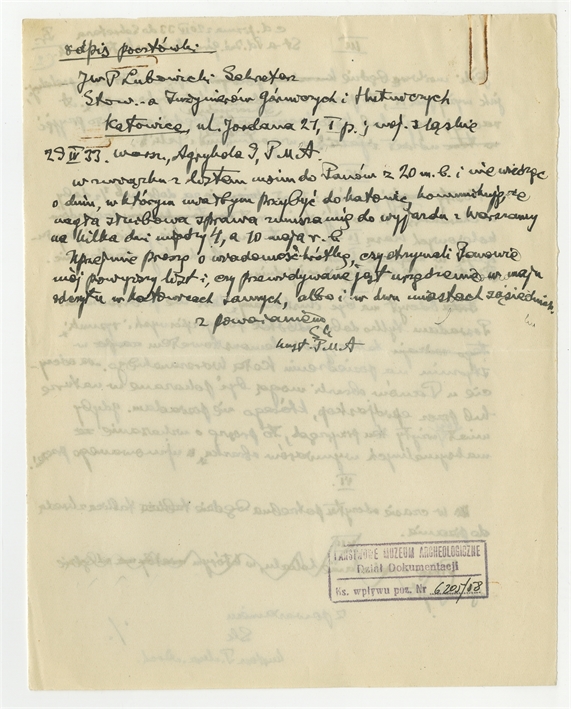 odpis pocztówki.
JWP Lubowicki Sekretarz
Stow.-a Inżynierów Górniczych i Hutniczych
Katowice, ul. Jordana 21, I p.; woj. śląskie
29 IV 33. Warsz., Agrykola 9, P.M.A.
w związku z listem moim do Panów z 20 m. b. i nie wiedząc
o dniu, w którym miałbym przybyć do Katowic, komunikuję, że
nagła służbowa sprawa zmusza mię do wyjazdu z Warszawy
na kilka dni między 4, a 10 maja r. b.
Uprzejmie proszę o wiadomość krótką, czy otrzymali Panowie
mój powyższy list i, czy przewidywane jest urządzenie w maju
odczytu w Katowicach samych, albo i w dwu miastach sąsiednich.
z poważaniem
kust. P.M.A
PAŃSTWOWE MUZEUM ARCHEOLOGICZNE
Dział Dokumentacji
Ks. wpływu poz. Nr 6205/58